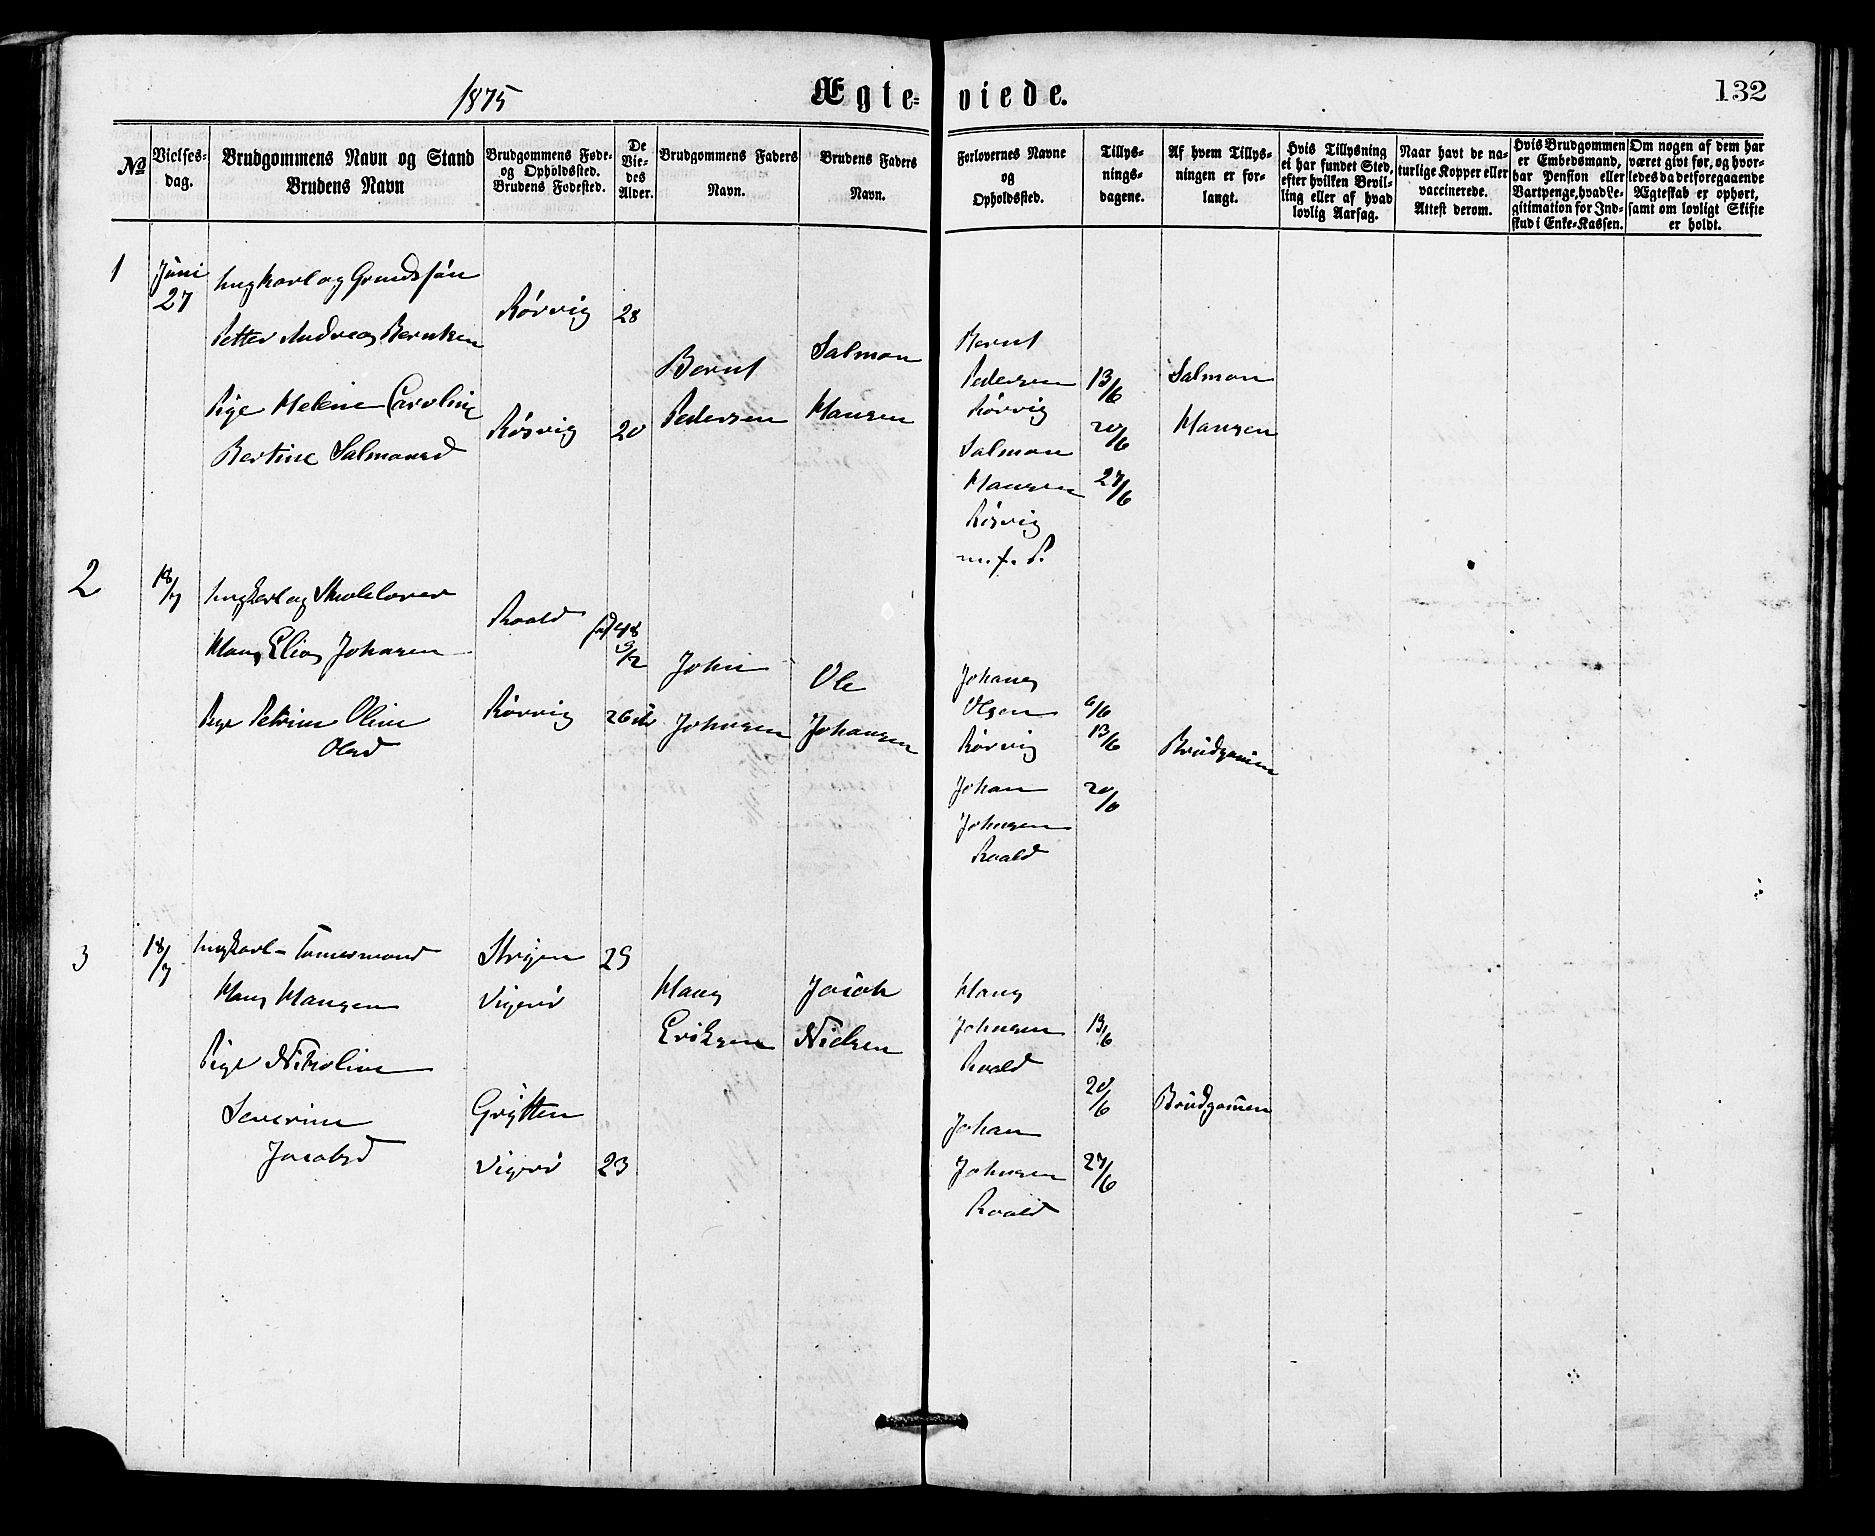 1875
Ægte-viede.
132
No
Vielses-
dag.
Brudgommens Navn og Stand
Brudens Navn
Brudgommens Føde-
og Opholdssted.
Brudens Fødested.
De
Vie-
des
Alder.
Brudgommens Faders
Navn.
Brudens Faders
Navn.
Forlovernes Navne
og
Opholdssted.
Tillys-
nings-
dagene.
Af hvem Tillys-
ningen er for-
langt.
Hvis Tillysning
ei har fundet Sted,
efter hvilken Bevil-
ling eller af hvad
lovlig Aarsag.
Naar havt de na-
turlige Kopper eller
vaccinerede.
Attest derom.
Hvis Brudgommen
er Embedsmand,
har Pension eller
Vartpenge, hvad Le-
gitimation for Ind-
skud i Enke-Kassen.
Om nogen af dem har
været givt før, og hvor-
ledes da det foregaaende
Ægteskab er ophørt,
samt om lovligt Skifte
er holdt.
1
Juni
27
Ungkarl og
Petter Andreas Berntsen
Pige Helene Caroline
Bertine Salmonsd
Rørvig
28
Røsvig
20
Bernt
Pedersen
Salmon
Hansen
Bernt
Pedersen
Rørvig
Salmon
Hansen
Røsvig
13/6
20/6
27/6
Salmon
Hansen
2
18/7
Ungkarl og Skolelærer
Hans Elias Johnsen
Pige Petrine Oline
Olsd
Roald
Rørvig
48
26
John
Johnsen
Ole
Johansen
Johans
Olsen
Rørvig
Johan
Johnsen
Roald
6/6
13/6
20/6
Brudgomen
3
18/7
Ungkarl
Hans Hansen
Pige Nikoline
Severine
Jacobsd
Vigerö
Grytten
Vigerö
25
23
Hans
Eriksen
Jacob
Nielsen
Hans
Johnsen
Roald
Johan
Johnsen
Roald
13/6
20/6
27/6
Brudgomen